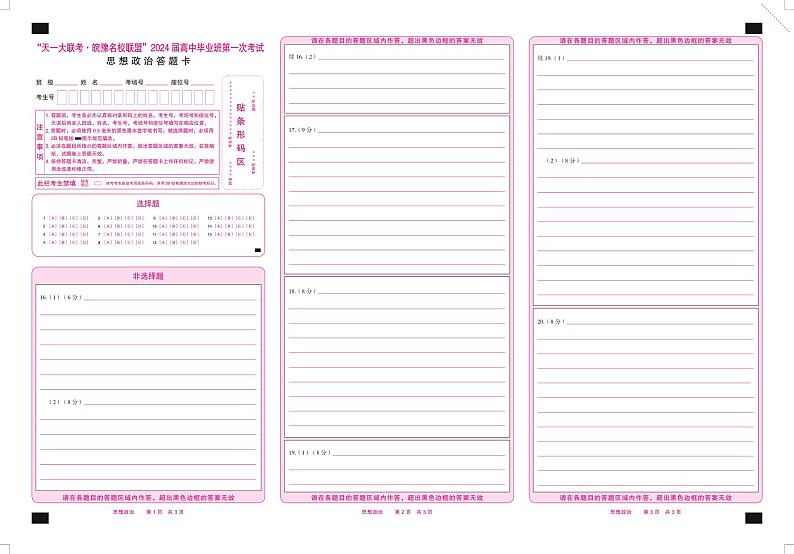 “天一大联考·皖豫名校联盟”2024届高中毕业班第一次考试
思想政治答题卡
班 级 姓 名 考场号 座位号
考生号
注意事项
1. 答题前，考生务必先认真核对条形码上的姓名、考生号、考场号和座位号，
无误后将本人班级、姓名、考生号、考场号和座位号填写在相应位置。
2. 答题时，必须使用0.5毫米的黑色墨水签字笔书写；做选择题时，必须用
2B铅笔按 图示规范填涂。
3. 必须在题目所指示的答题区域内作答，超出答题区域的答案无效；在草稿
纸、试题卷上答题无效。
4. 保持答题卡清洁、完整，严禁折叠，严禁在答题卡上作任何标记，严禁使
用涂改液和修正带。
贴条形码区
此栏考生禁填
缺考
标记
选择题
1 [A] [B] [C] [D] 5 [A] [B] [C] [D] 9 [A] [B] [C] [D] 13 [A] [B] [C] [D]
2 [A] [B] [C] [D] 6 [A] [B] [C] [D] 10 [A] [B] [C] [D] 14 [A] [B] [C] [D]
3 [A] [B] [C] [D] 7 [A] [B] [C] [D] 11 [A] [B] [C] [D] 15 [A] [B] [C] [D]
4 [A] [B] [C] [D] 8 [A] [B] [C] [D] 12 [A] [B] [C] [D]
非选择题
16.（1）（6分）
（2）（8分）
请在各题目的答题区域内作答，超出黑色边框的答案无效
思想政治 第1页 共3页
请在各题目的答题区域内作答，超出黑色边框的答案无效
续16.（2）
17.（9分）
18.（8分）
19.（1）（8分）
请在各题目的答题区域内作答，超出黑色边框的答案无效
思想政治 第2页 共3页
请在各题目的答题区域内作答，超出黑色边框的答案无效
续19.（1）
（2）（8分）
20.（8分）
请在各题目的答题区域内作答，超出黑色边框的答案无效
思想政治 第3页 共3页